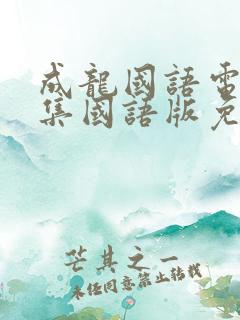 成龍國語電
集國語版免
芒其之一
未经同意禁止转载